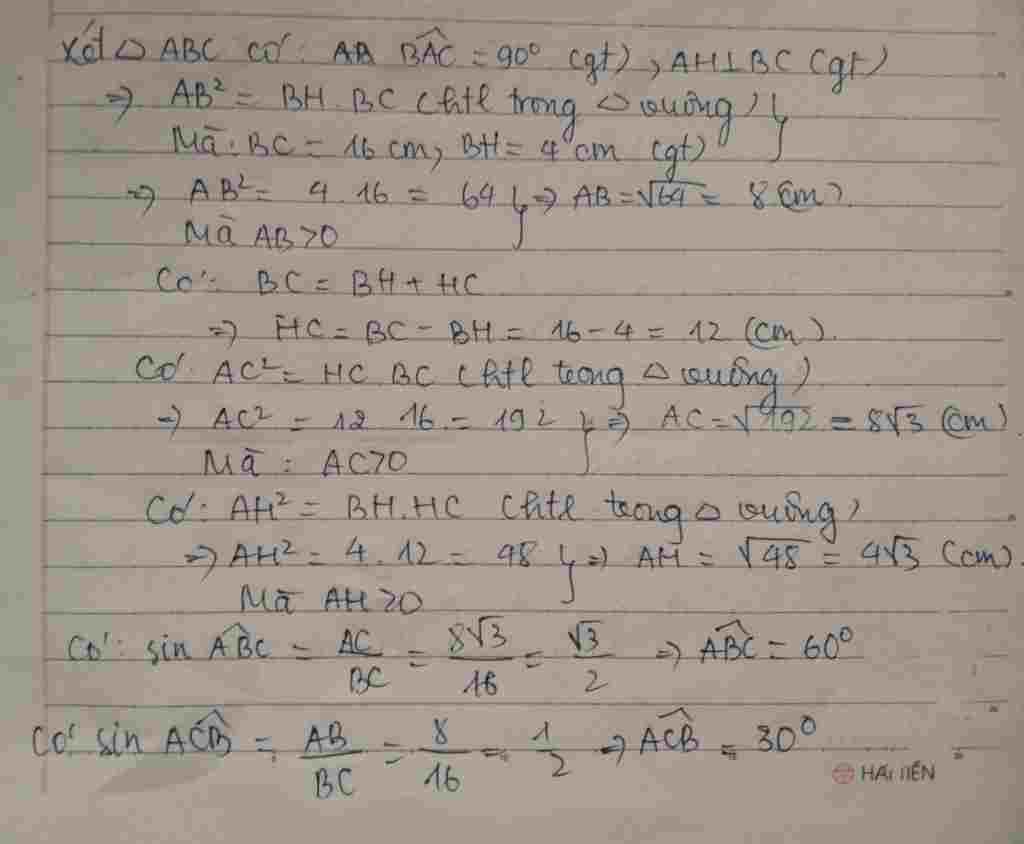 Xét △ ABC có: AB BÂC = 90° (gt), AH⊥BC (gt)
⇒ AB² = BH.BC (htl trong △ vuông) }
Mà: BC = 16 cm, BH = 4 cm (gt)
⇒ AB² = 4.16 = 64 } ⇒ AB = √64 = 8 (cm).
Mà AB>0
Có: BC = BH + HC
⇒ HC = BC - BH = 16 - 4 = 12 (cm).
Có AC² = HC BC (htl trong △ vuông)
⇒ AC² = 12 16 = 192 } ⇒ AC = √192 = 8√3 (cm)
Mà: AC>0
Có: AH² = BH.HC (htl trong △ vuông)
⇒ AH² = 4.12 = 48 } ⇒ AH = √48 = 4√3 (cm).
Mà AH>0
Có: sin ABC = AC/BC = 8√3/16 = √3/2 ⇒ ABC = 60°
Có sin ACB = AB/BC = 8/16 = 1/2 ⇒ ACB = 30°
HẢI TIẾN